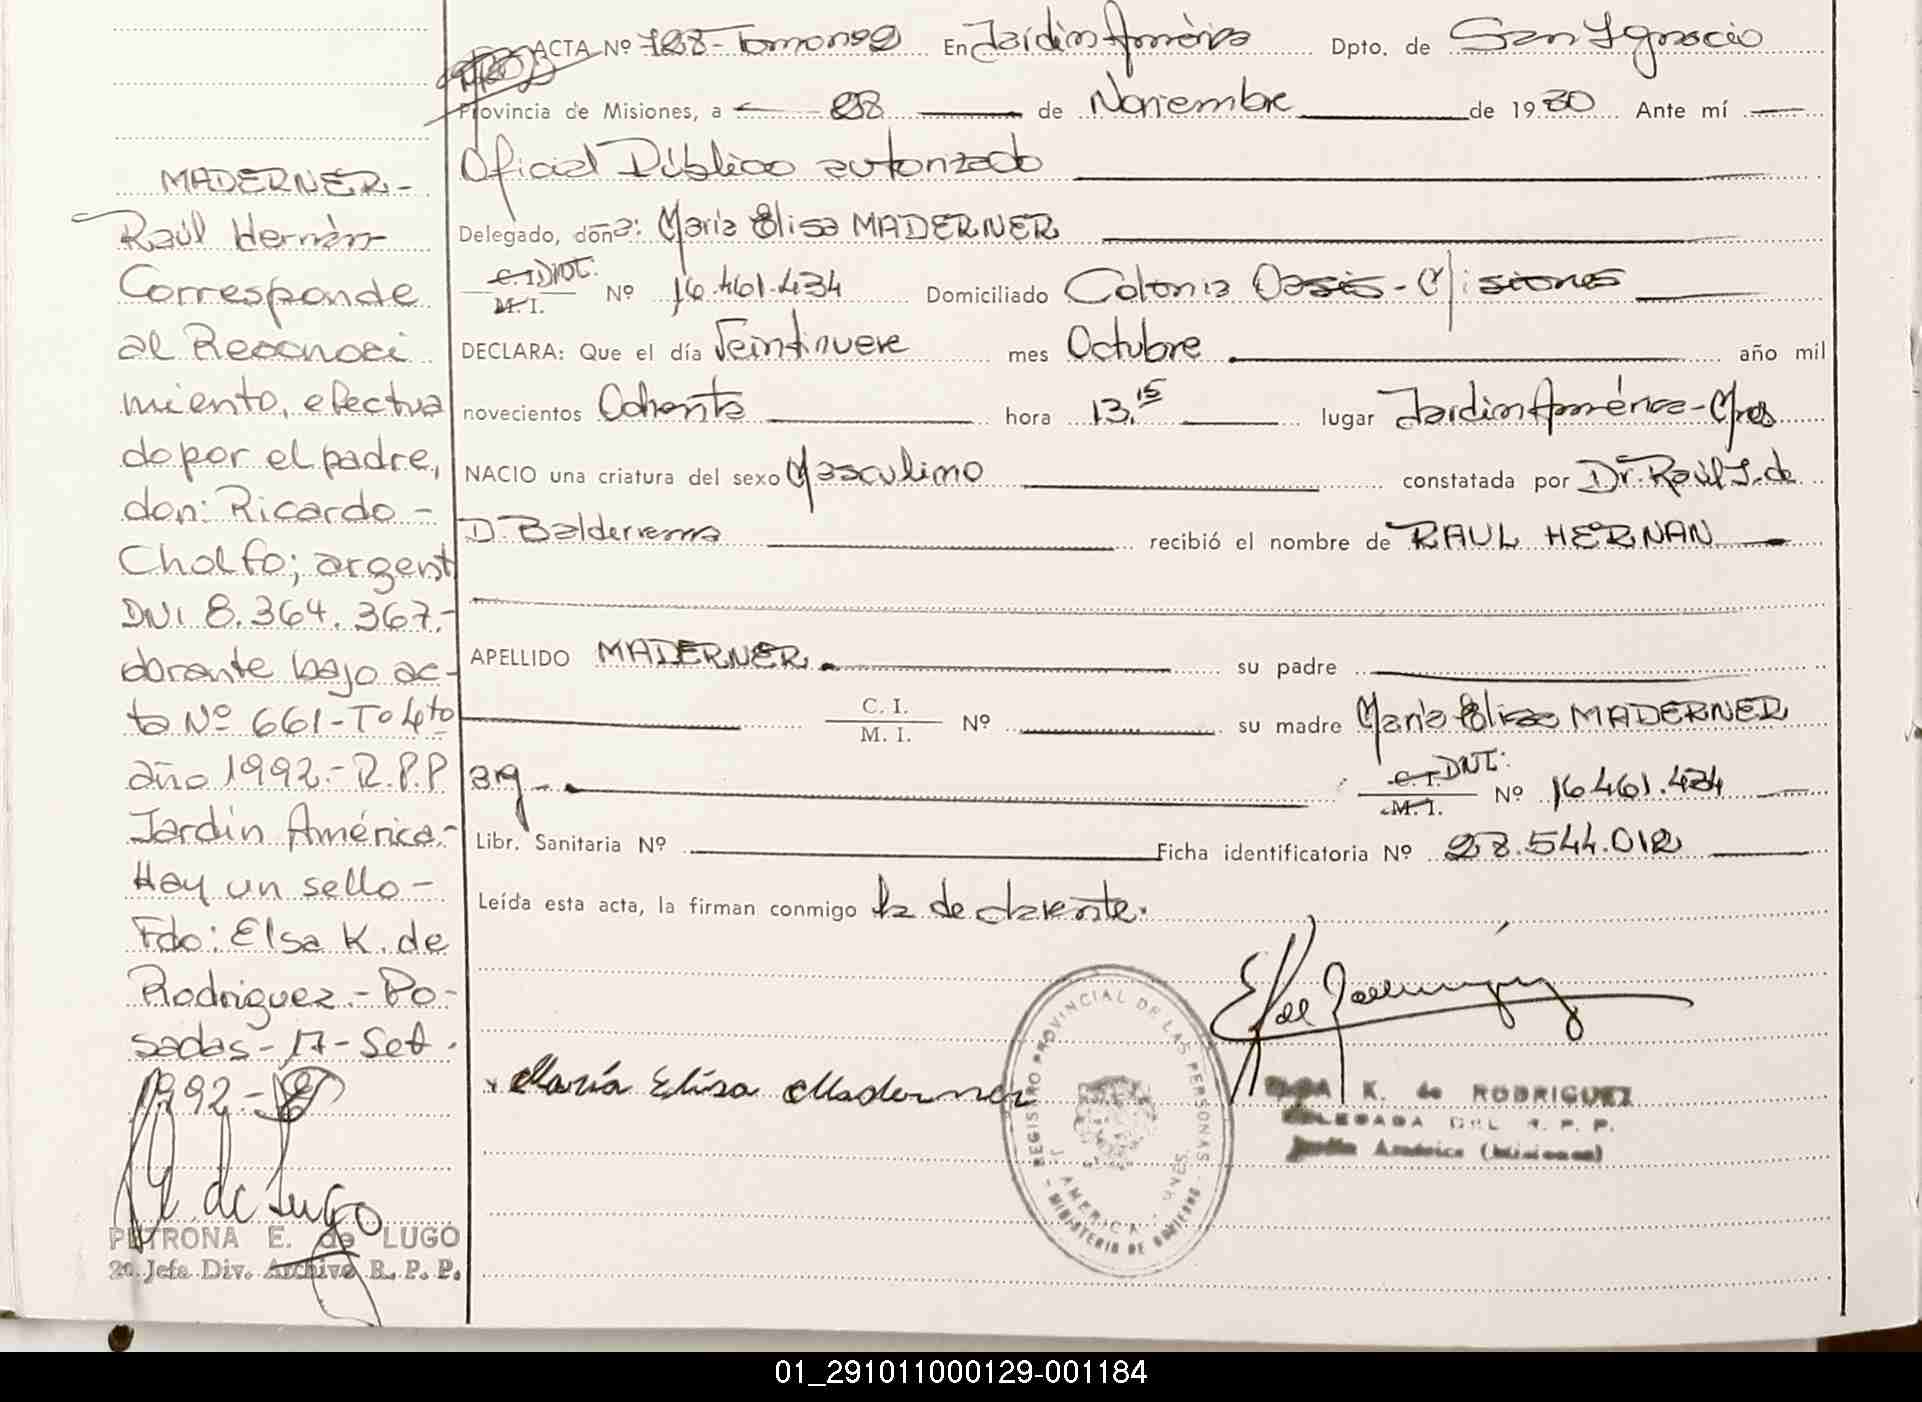 ACTA Nº 188-Tomo nº2 En Jardín América Dpto. de San Ignacio
Provincia de Misiones, a 28 de Noviembre de 1980 Ante mí
Oficial Público autorizado
Delegado, doña: María Elisa MADERNER
C.I. DNI: M.I. Nº 16.461.434 Domiciliado Colonia Oasis - Misiones
DECLARA: Que el día Veintinueve mes Octubre año mil
novecientos Ochenta hora 13,15 lugar Jardín América-Mnes
NACIO una criatura del sexo Masculino constatada por Dr. Raúl J. de
D. Balderrema recibió el nombre de RAUL HERNAN
APELLIDO MADERNER su padre
C. I. M. I. Nº su madre María Elisa MADERNER
arg. C.I. DNI: M.I. Nº 16.461.434
Libr. Sanitaria Nº Ficha identificatoria Nº 28.544.012
Leída esta acta, la firman conmigo la declarante.
María Elisa Maderner
REGISTRO PROVINCIAL DE LAS PERSONAS
J. AMERICA
- MINISTERIO DE GOBIERNO -
ELSA K. de RODRIGUEZ
DELEGADA DEL R. P. P.
Jardín América (Misiones)
MADERNER-
Raúl Hernán
Corresponde
al Reconoci
miento, efectua
do por el padre,
don: Ricardo -
Cholfo; argent
DNI 8.364.367.-
dorante bajo ac-
ta Nº 661-Tº 4to
año 1992.- R.P.P
Jardín América.-
Hay un sello-
Fdo: Elsa K. de
Rodriguez.- Po-
sadas- 17- Set.
1992-
E de Lugo
PETRONA E. de LUGO
2a. Jefa Div. Archivo R. P. P.
01_291011000129-001184